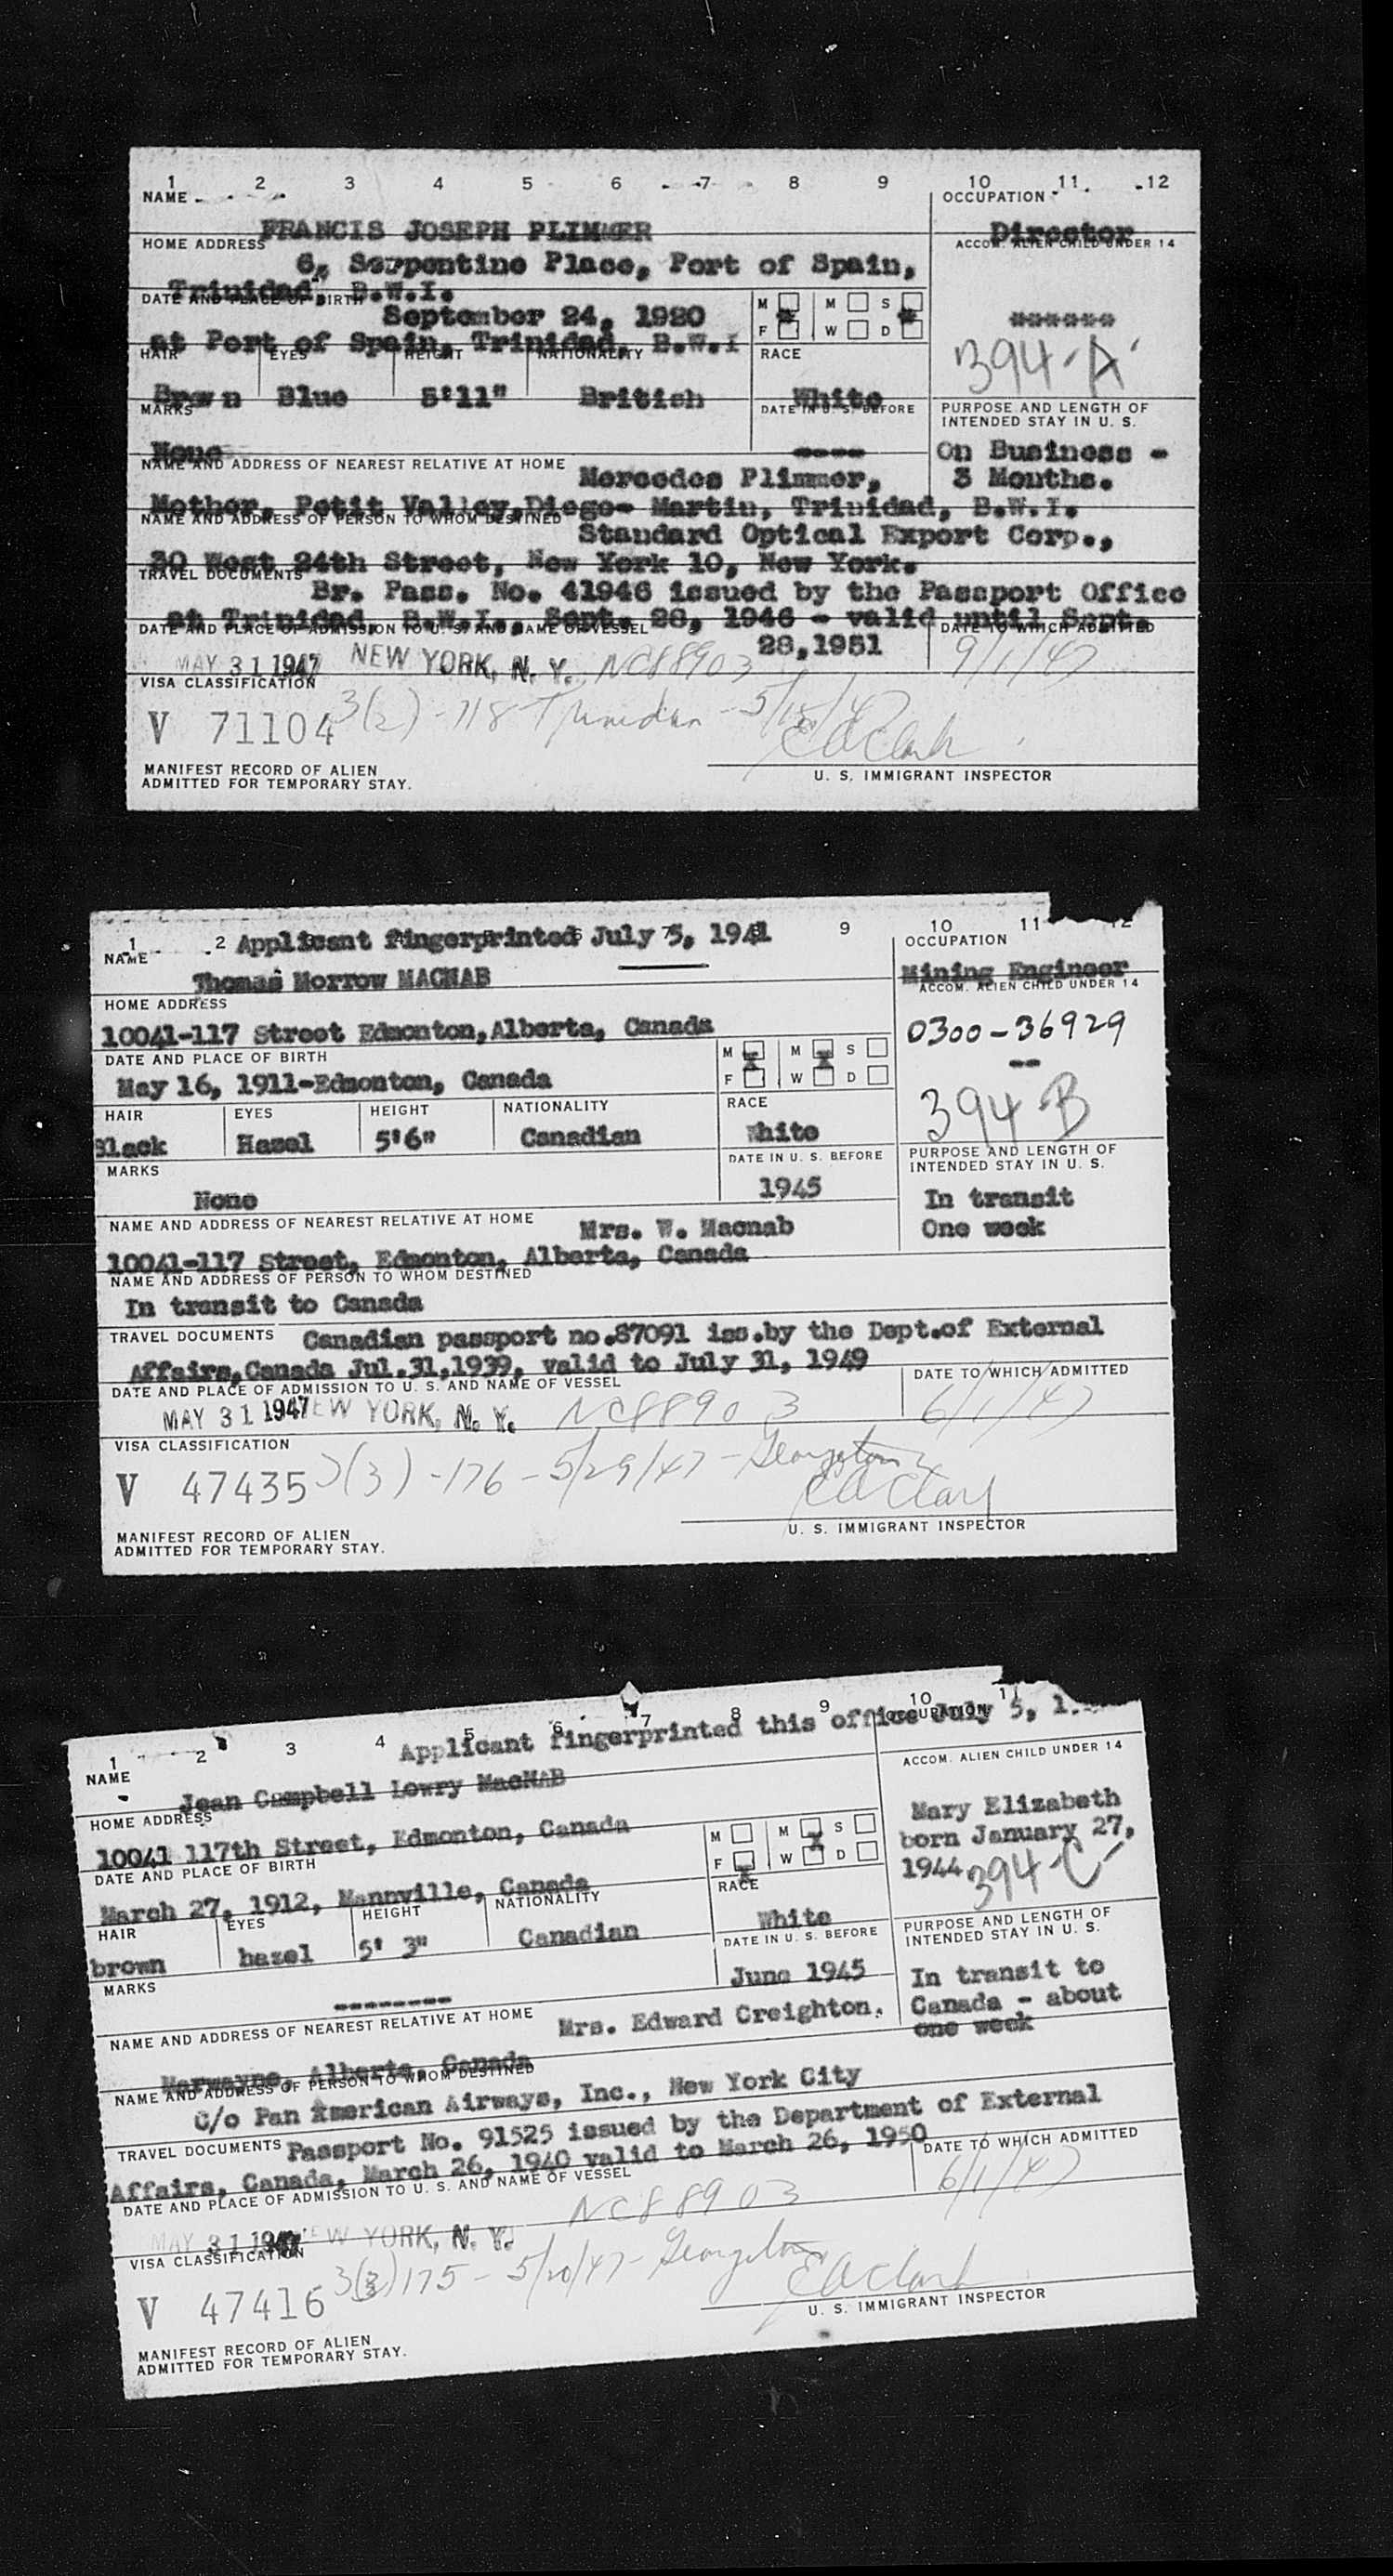 1 2 3 4 5 6 7 8 9 10 11 12
NAME OCCUPATION
FRANCIS JOSEPH PLIMMER Director
HOME ADDRESS ACCOM. ALIEN CHILD UNDER 14
6, Serpentine Place, Port of Spain,
Trinidad, B.W.I.
DATE AND PLACE OF BIRTH M M S
September 24, 1920 ******
F W D
at Port of Spain, Trinidad, B.W.I
HAIR EYES HEIGHT NATIONALITY RACE 394-A
Brown Blue 5'11" British White
MARKS DATE IN U. S. BEFORE PURPOSE AND LENGTH OF
INTENDED STAY IN U. S.
None ---- On Business -
NAME AND ADDRESS OF NEAREST RELATIVE AT HOME
Mercedes Plimmer, 3 Months.
Mother, Petit Valley, Diego- Martin, Trinidad, B.W.I.
NAME AND ADDRESS OF PERSON TO WHOM DESTINED
Standard Optical Export Corp.,
30 West 24th Street, New York 10, New York.
TRAVEL DOCUMENTS
Br. Pass. No. 41946 issued by the Passport Office
at Trinidad, B.W.I., Sept. 28, 1946 - valid until Sept.
DATE AND PLACE OF ADMISSION TO U. S. AND NAME OF VESSEL DATE TO WHICH ADMITTED
28,1951
MAY 31 1947 NEW YORK, N. Y. NC88903 9/1/47
VISA CLASSIFICATION
V 71104 3(2) - 718 Trinidad - 5/15/47
E A Clark
MANIFEST RECORD OF ALIEN
ADMITTED FOR TEMPORARY STAY.
U. S. IMMIGRANT INSPECTOR
1 2 Applicant fingerprinted July 5, 1941 9 10 11 12
NAME OCCUPATION
Thomas Morrow MACNAB Mining Engineer
HOME ADDRESS ACCOM. ALIEN CHILD UNDER 14
10041-117 Street Edmonton,Alberta, Canada 0300-36929
DATE AND PLACE OF BIRTH M M S
--
May 16, 1911-Edmonton, Canada F W D
HAIR EYES HEIGHT NATIONALITY RACE 394-B
Black Hazel 5'6" Canadian White
MARKS DATE IN U. S. BEFORE PURPOSE AND LENGTH OF
INTENDED STAY IN U. S.
None 1945 In transit
NAME AND ADDRESS OF NEAREST RELATIVE AT HOME Mrs. W. Macnab One week
10041-117 Street, Edmonton, Alberta, Canada
NAME AND ADDRESS OF PERSON TO WHOM DESTINED
In transit to Canada
TRAVEL DOCUMENTS Canadian passport no.87091 iss.by the Dept.of External
Affairs,Canada Jul.31,1939, valid to July 31, 1949
DATE AND PLACE OF ADMISSION TO U. S. AND NAME OF VESSEL DATE TO WHICH ADMITTED
MAY 31 1947 NEW YORK, N. Y. NC88903 6/1/47
VISA CLASSIFICATION
V 47435 3(3) -176 - 5/29/47 - Georgetown
E A Clark
MANIFEST RECORD OF ALIEN
ADMITTED FOR TEMPORARY STAY.
U. S. IMMIGRANT INSPECTOR
1 2 3 4 5 6 7 8 9 10 11
Applicant fingerprinted this office July 5,
NAME OCCUPATION
Jean Campbell Lowry MacNAB ACCOM. ALIEN CHILD UNDER 14
HOME ADDRESS
10041 117th Street, Edmonton, Canada Mary Elizabeth
DATE AND PLACE OF BIRTH M M S born January 27,
March 27, 1912, Mannville, Canada F W D 1944
394-C-
HAIR EYES HEIGHT NATIONALITY RACE
brown hazel 5' 3" Canadian White
MARKS DATE IN U. S. BEFORE PURPOSE AND LENGTH OF
INTENDED STAY IN U. S.
-------- June 1945 In transit to
NAME AND ADDRESS OF NEAREST RELATIVE AT HOME Mrs. Edward Creighton. Canada - about
one week
Marwayne, Alberta, Canada
NAME AND ADDRESS OF PERSON TO WHOM DESTINED
C/o Pan American Airways, Inc., New York City
TRAVEL DOCUMENTS Passport No. 91525 issued by the Department of External
Affairs, Canada, March 26, 1940 valid to March 26, 1950
DATE AND PLACE OF ADMISSION TO U. S. AND NAME OF VESSEL DATE TO WHICH ADMITTED
MAY 31 1947 NEW YORK, N. Y. NC88903 6/1/47
VISA CLASSIFICATION
V 47416 3(3) 175 - 5/20/47 - Georgetown
E A Clark
MANIFEST RECORD OF ALIEN
ADMITTED FOR TEMPORARY STAY.
U. S. IMMIGRANT INSPECTOR